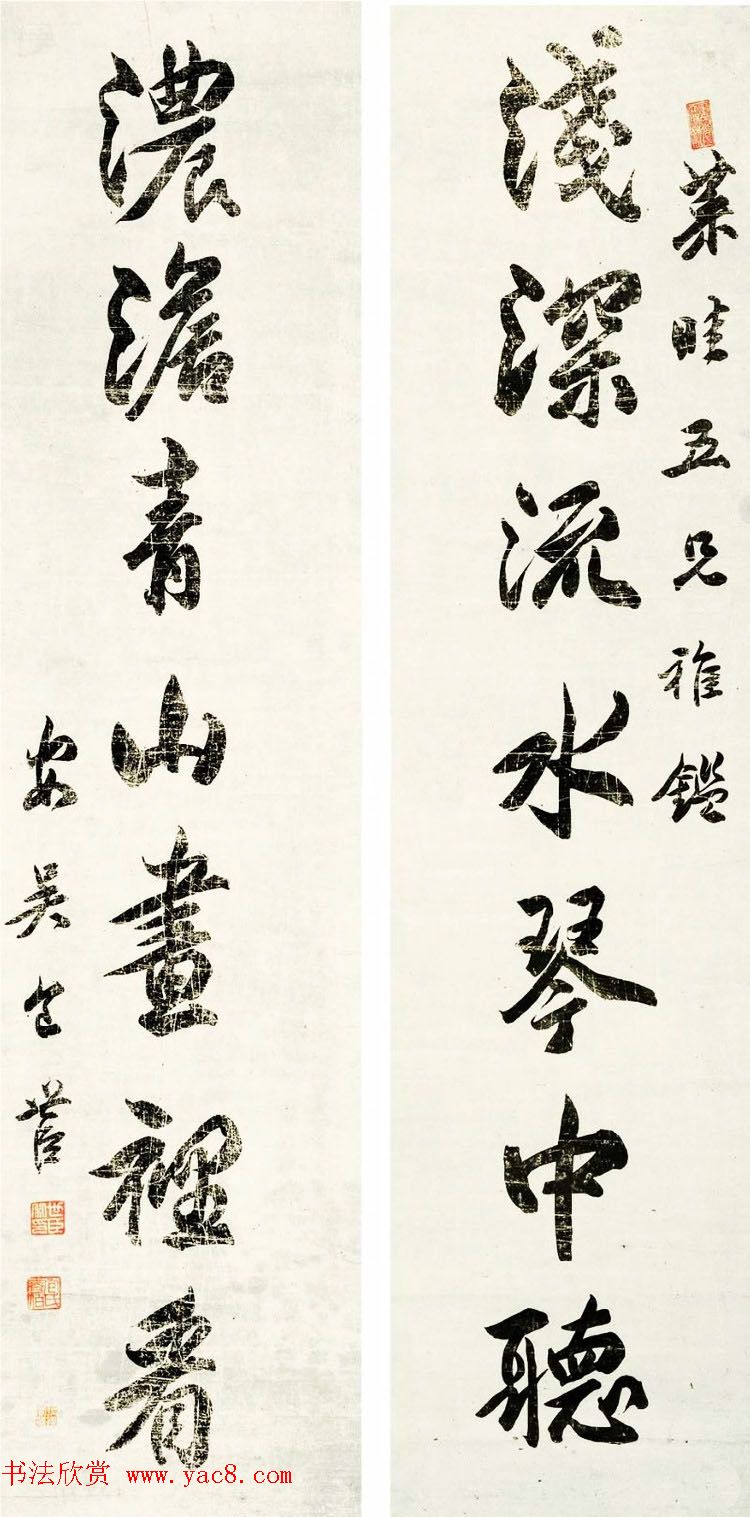 菜畦五兄雅鑑
淺深流水琴中聽
濃澹青山畫裡看
安吳包世臣
书法欣赏 www.yac8.com